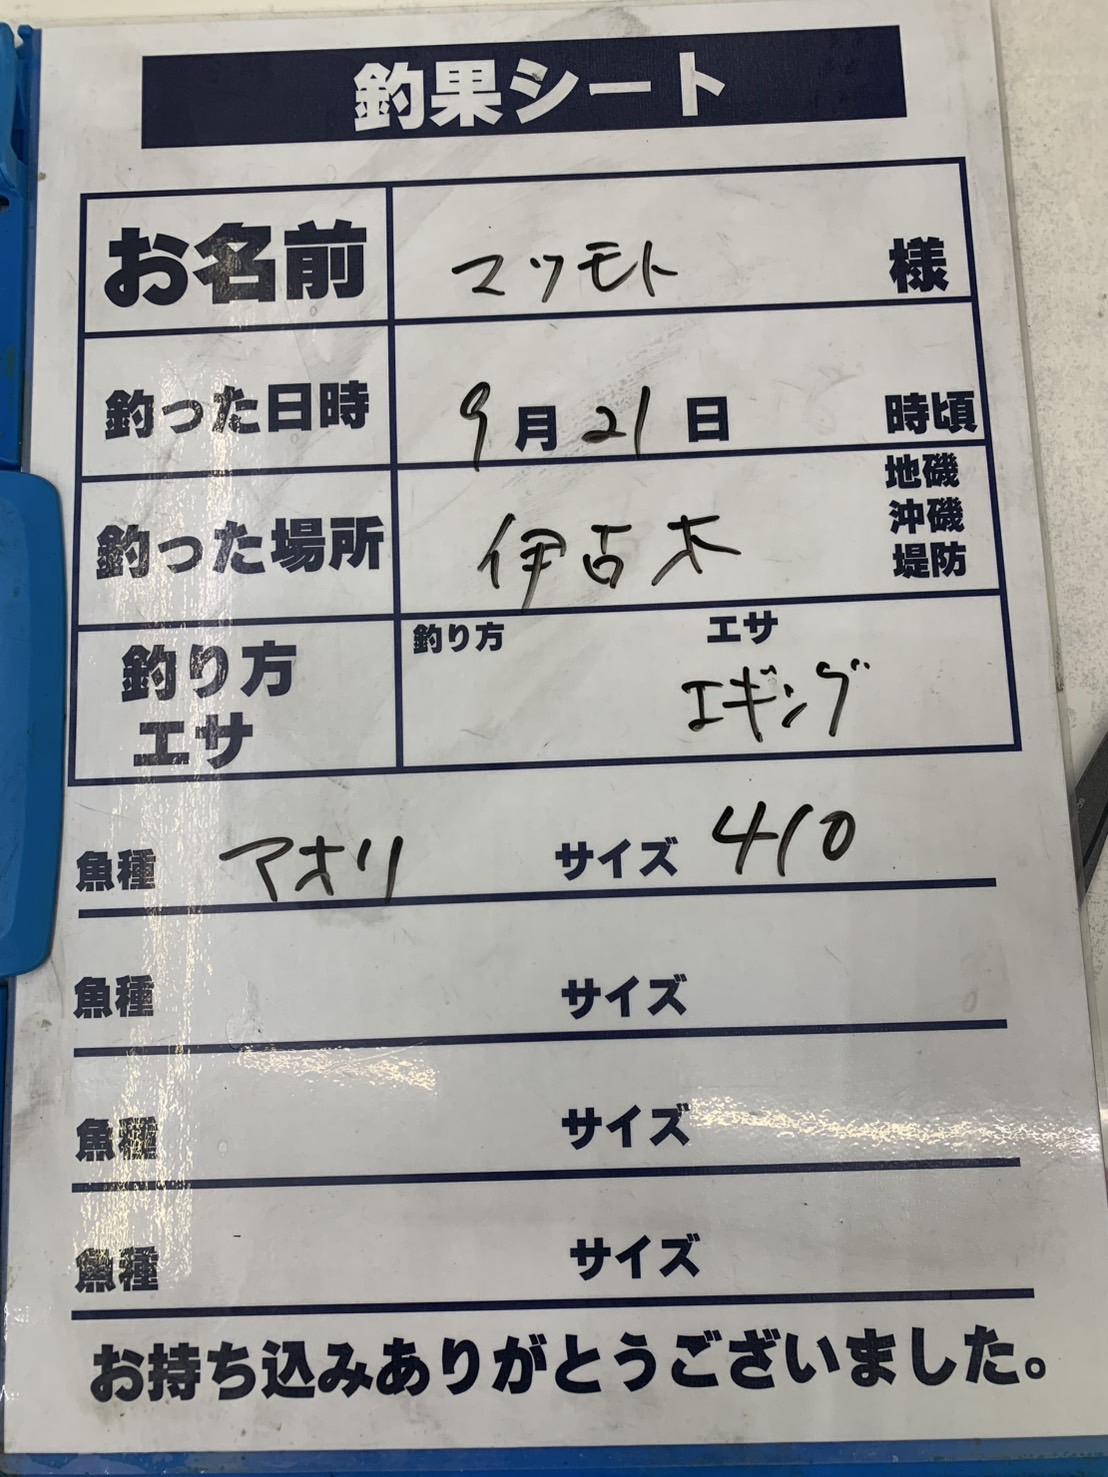 釣果シート
お名前 マツモト 様
釣った日時 9月21日 時頃
釣った場所 伊古木 地磯
沖磯
堤防
釣り方
エサ
釣り方 エサ
エギング
魚種 アオリ サイズ 410
魚種 サイズ
魚種 サイズ
魚種 サイズ
お持ち込みありがとうございました。